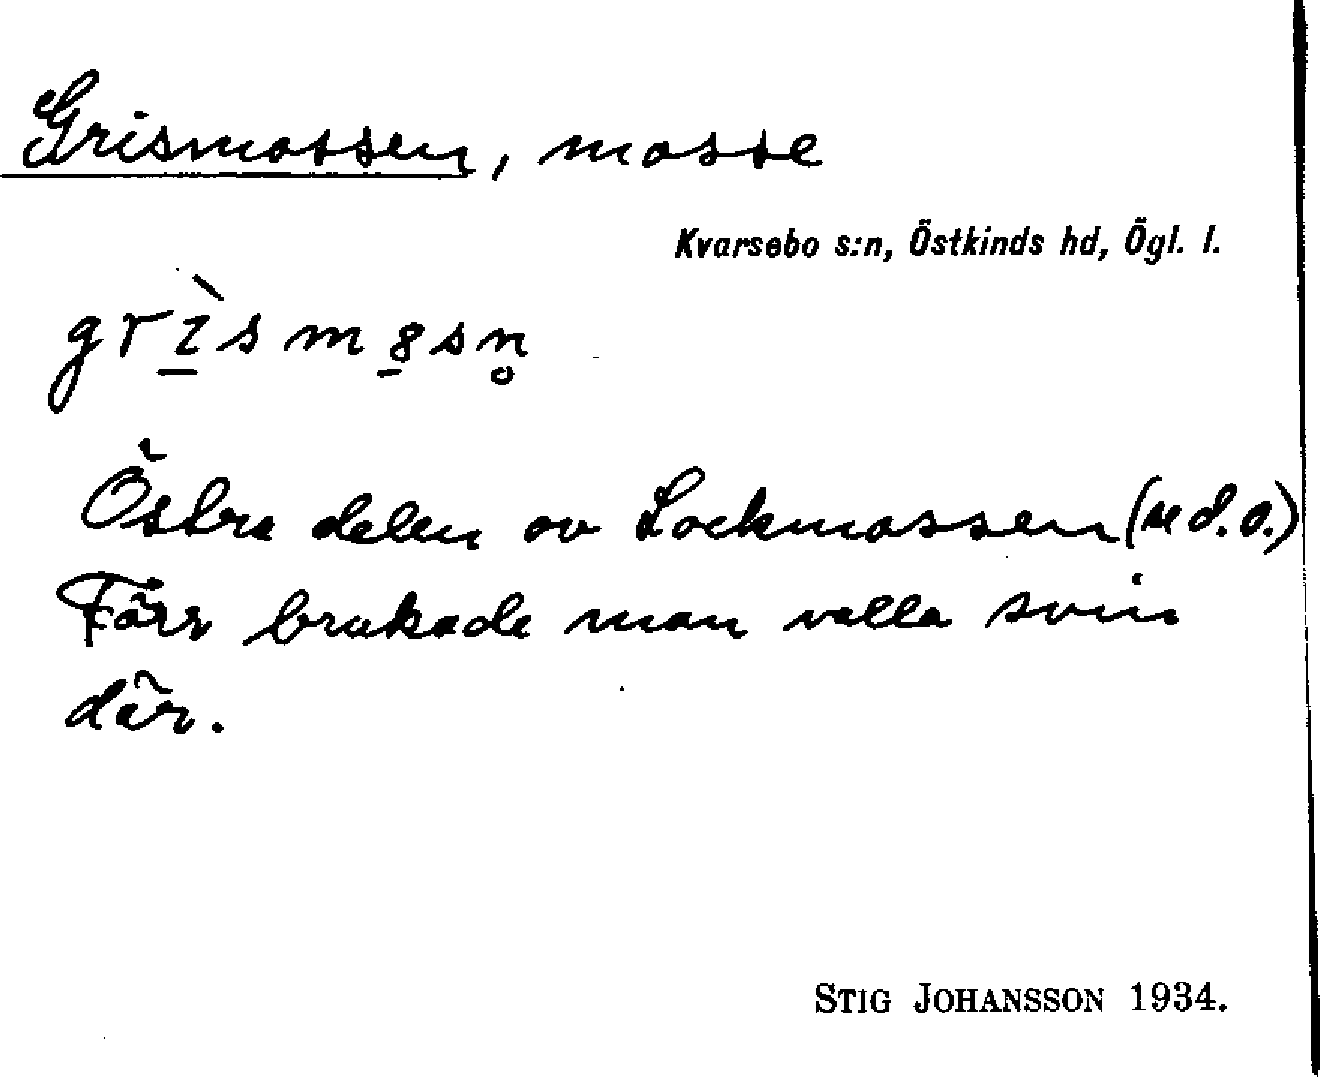 Grismossen, mosse
Kvarsebo s:n, Östkinds hd, Ögl. l.
grìsm8sn̥
Östra delen av Lockmossen (se d.o.)
Förr brukade man valla svin
där.
STIG JOHANSSON 1934.